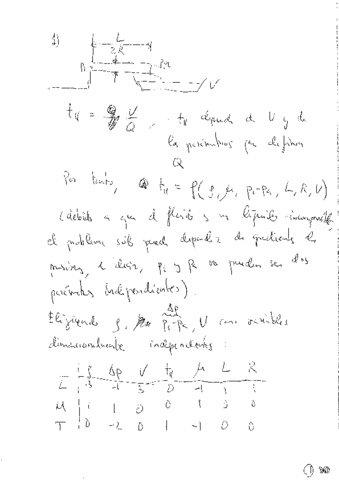 1)
L
2R
Pa
V
t_v = V/Q , t_v depende de V y de
los parámetros que definen
Q
Por tanto, t_v = f(ρ, μ, pi-pa, L, R, V)
(debido a que el fluido es un líquido incompresible,
el problema sólo puede depender de gradientes de
presiones, es decir, pi y Pa no pueden ser dos
parámetros independientes).
Eligiendo ρ, pi-pa, V como variables
Δp
dimensionalmente independientes:
ρ Δp V t_v μ L R
L -3 -1 3 0 -1 1 1
M 1 1 0 0 1 0 0
T 0 -2 0 1 -1 0 0
1